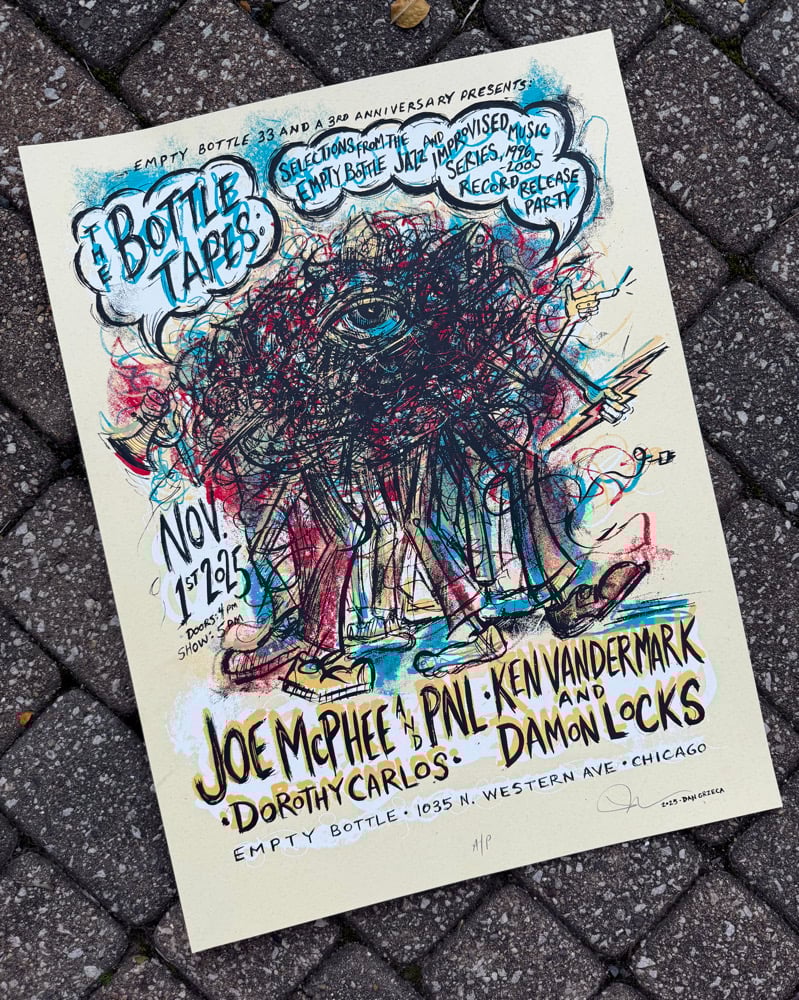 EMPTY BOTTLE 33 AND A 3RD ANNIVERSARY PRESENTS:
THE
BOTTLE
TAPES:
SELECTIONS FROM THE
EMPTY BOTTLE JAZZ AND IMPROVISED MUSIC
SERIES, 1996-2005
RECORD RELEASE
PARTY
NOV.
1ST 2025
DOORS: 4 PM
SHOW: 5 PM
JOE MCPHEE AND PNL • KEN VANDERMARK
AND
DAMON LOCKS
• DOROTHY CARLOS •
EMPTY BOTTLE • 1035 N. WESTERN AVE • CHICAGO
2025 • DAN GRZECA
A/P